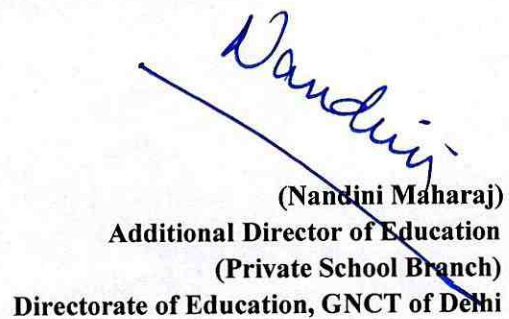 Nandini
(Nandini Maharaj)
Additional Director of Education
(Private School Branch)
Directorate of Education, GNCT of Delhi